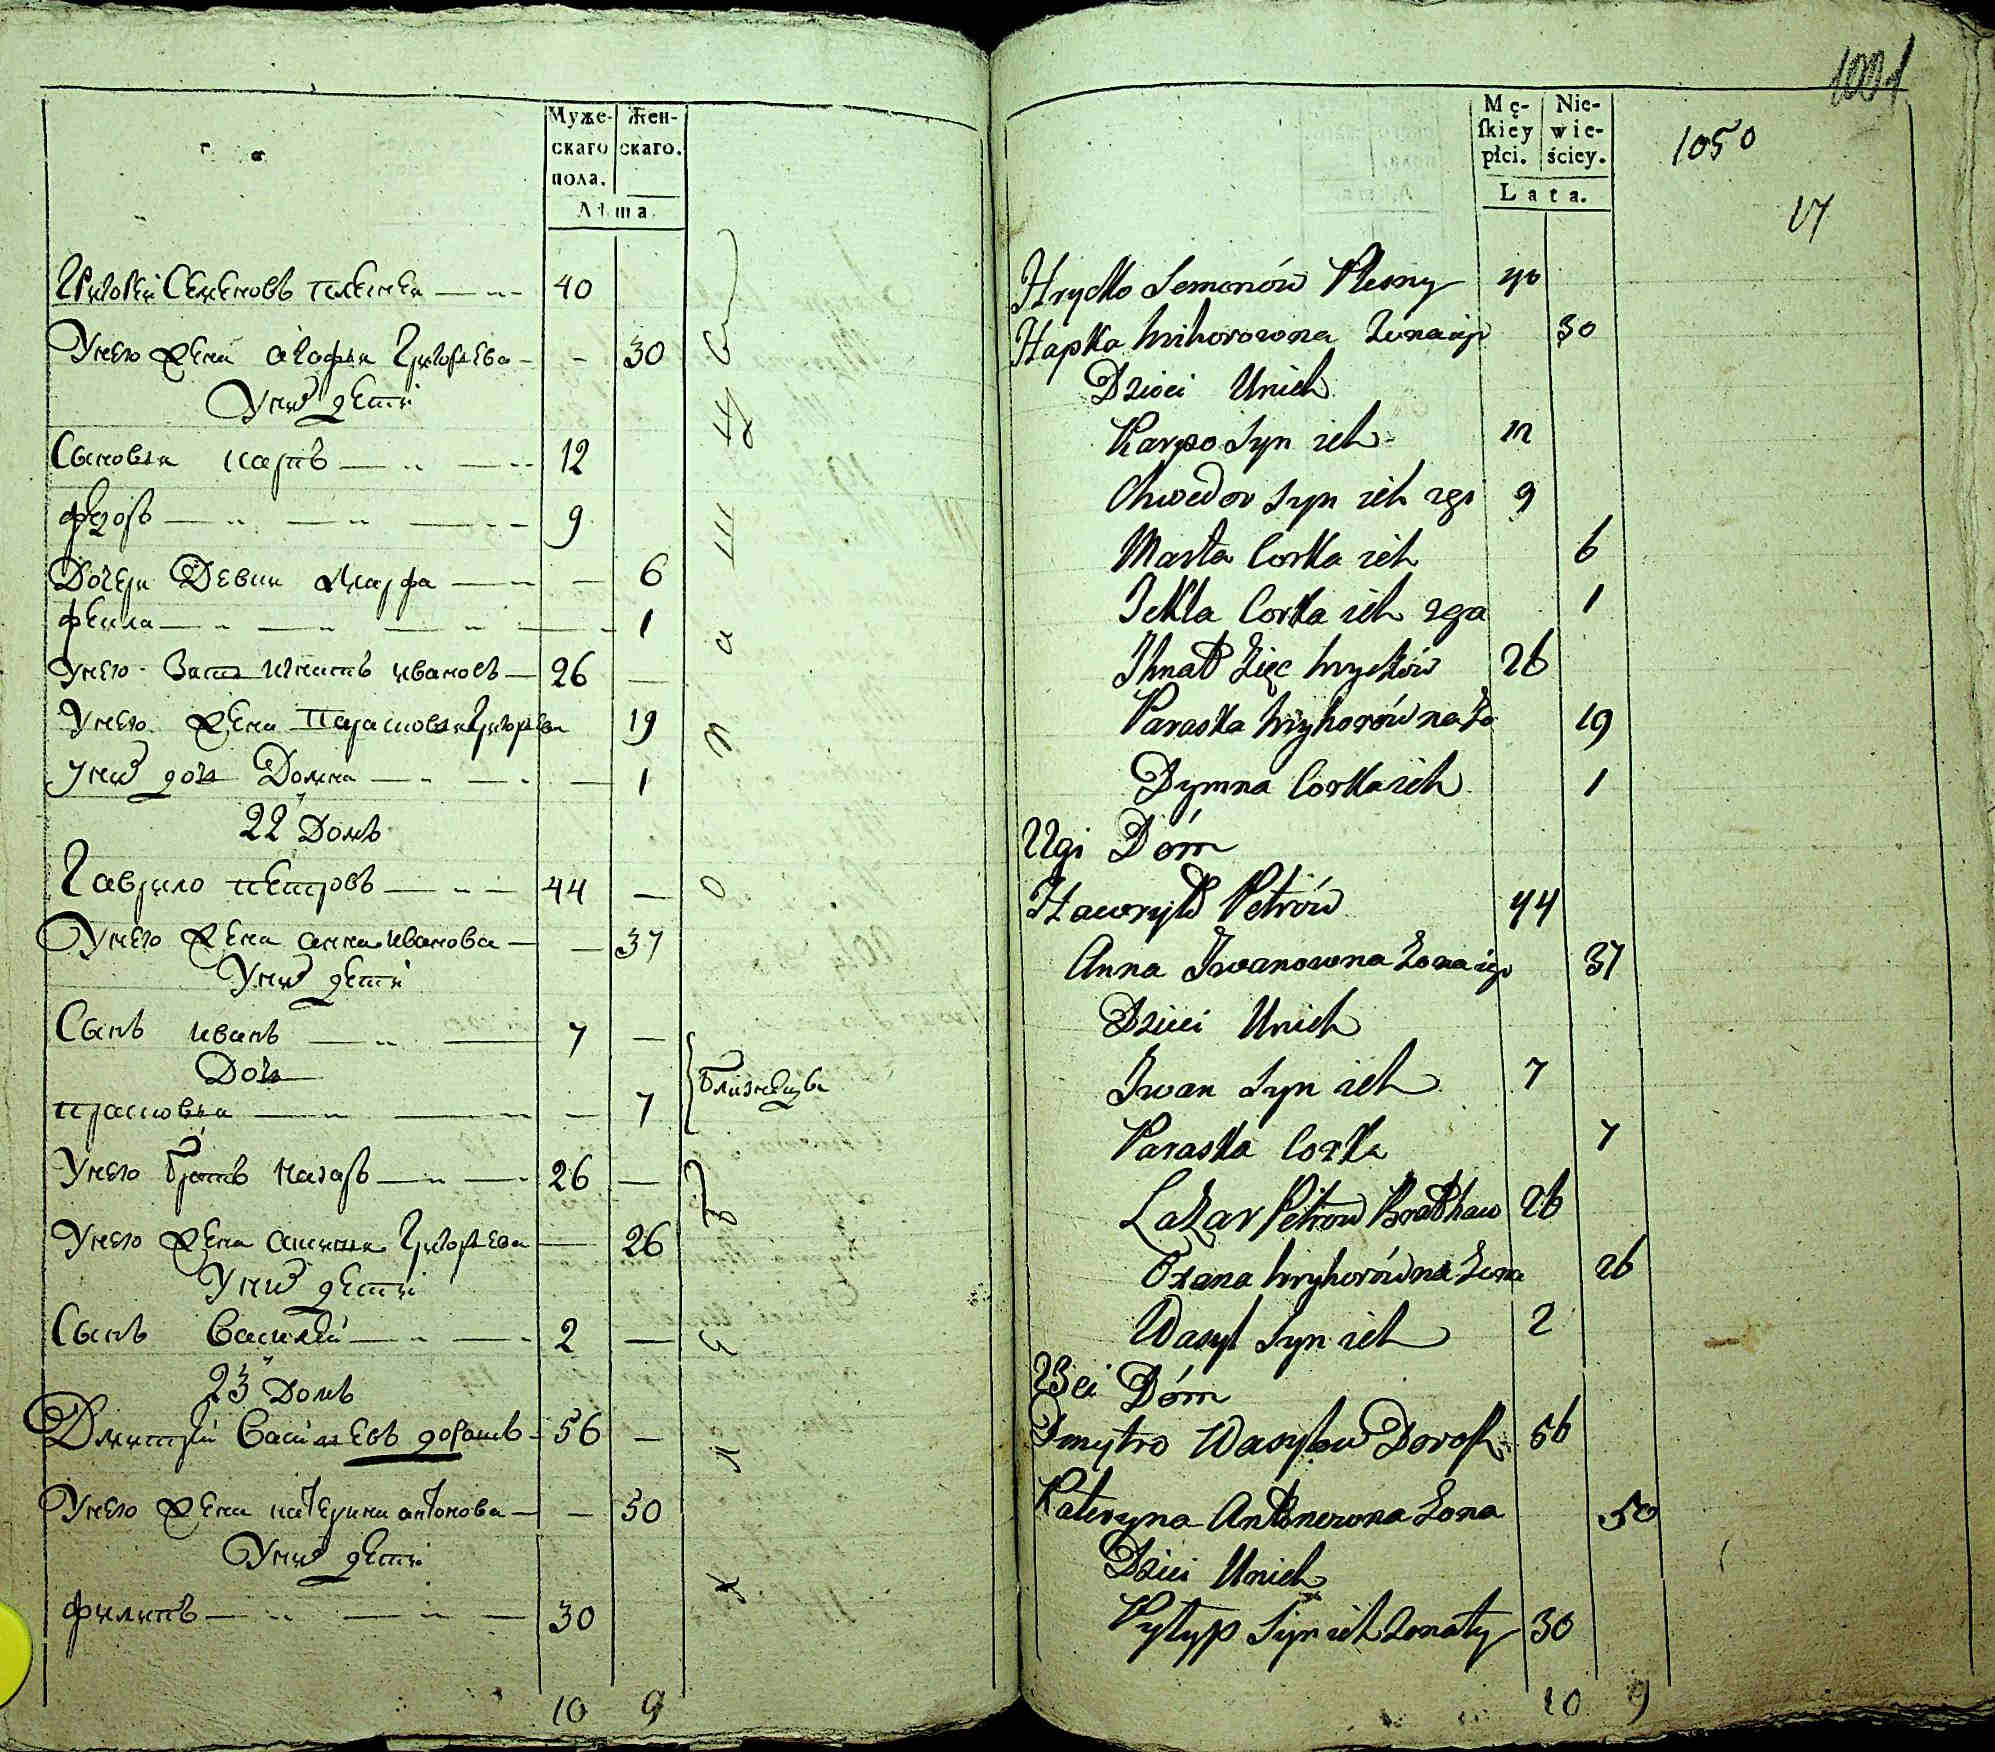 Муже-
скаго
пола.
Жен-
скаго.
Лѣта.
Григорей Семеновъ 40
У него жена агафья Григорьева 30
У нихъ дети
Сыновья карпъ 12
федоръ 9
Дочери Девки Марфа 6
фекла 1
У него Зять игнатъ ивановъ 26
У него жена Парасковья Григорьева 19
У нихъ дочь Домна 1
22й Домъ
Гаврило петровъ 44
У него жена анна иванова 37
У нихъ дети
Сынъ иванъ 7
Дочь
прасковья 7
близнецы
У него братъ назаръ 26
У него жена Григорьева 26
У нихъ дети
Сынъ Василей 2
23й Домъ
Дмитрей Васильевъ 56
У него жена катерина антонова 50
У нихъ дети
филипъ 30
10 9
1001
1050
Mę-
skiey
płci.
Nie-
wie-
ściey.
Lata.
17
Hrycko Semenów 40
Hapka hrihorowna Zona iego 30
Dzieci Unich
Karpo Syn ich 12
Chwedor Syn ich 2gi 9
Marta Corka ich 6
Tekla Corka ich 2ga 1
Ihnat Zięc hryckow 26
Paraska hryhorówna Zo 19
Dymna Corka ich 1
22gi Dóm
Hawryło Petrów 44
Anna Iwanowna Zona iego 37
Dzieci Unich
Iwan Syn ich 7
Paraska Corka 7
Łazar Petrow Brat haw 26
Oxana hryhorówna Zona 26
Wasyl Syn ich 2
23ci Dóm
Dmytro Wasylow 56
Kateryna Antonowna Zona 50
Dzieci Unich
Pyłyp Syn ich Zonaty 30
10 9